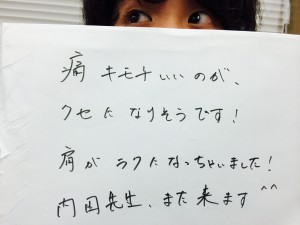 痛キモチいいのが、
クセになりそうです!
肩がラクになっちゃいました!
内田先生、また来ます^^